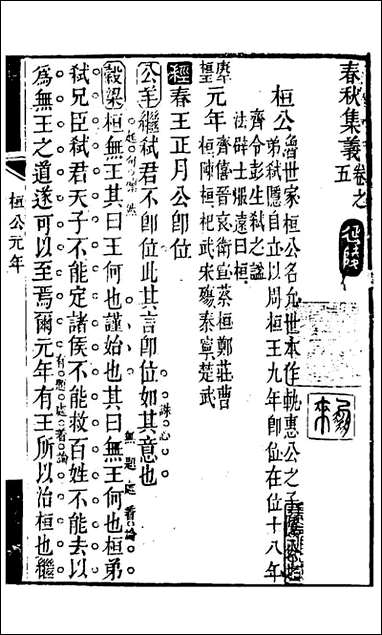 春秋集義卷之五
延陵
桓公魯世家桓公名允世本作軌惠公之子
弟弒隱自立以周桓王九年即位在位十八年
齊令彭生弒之謚
法辟土服遠曰桓
元年齊僖晉哀衛宣蔡桓鄭莊曹
桓陳桓杞武宋殤秦寧楚武
經春王正月公即位
公羊繼弒君不言即位此其言即位如其意也
誅心
穀梁桓無王其曰王何也謹始也其曰無王何也桓弟
無題處著論
弒兄臣弒君天子不能定諸侯不能救百姓不能去以
為無王之道遂可以至焉爾元年有王所以治桓也繼
有題處著論
桓公元年